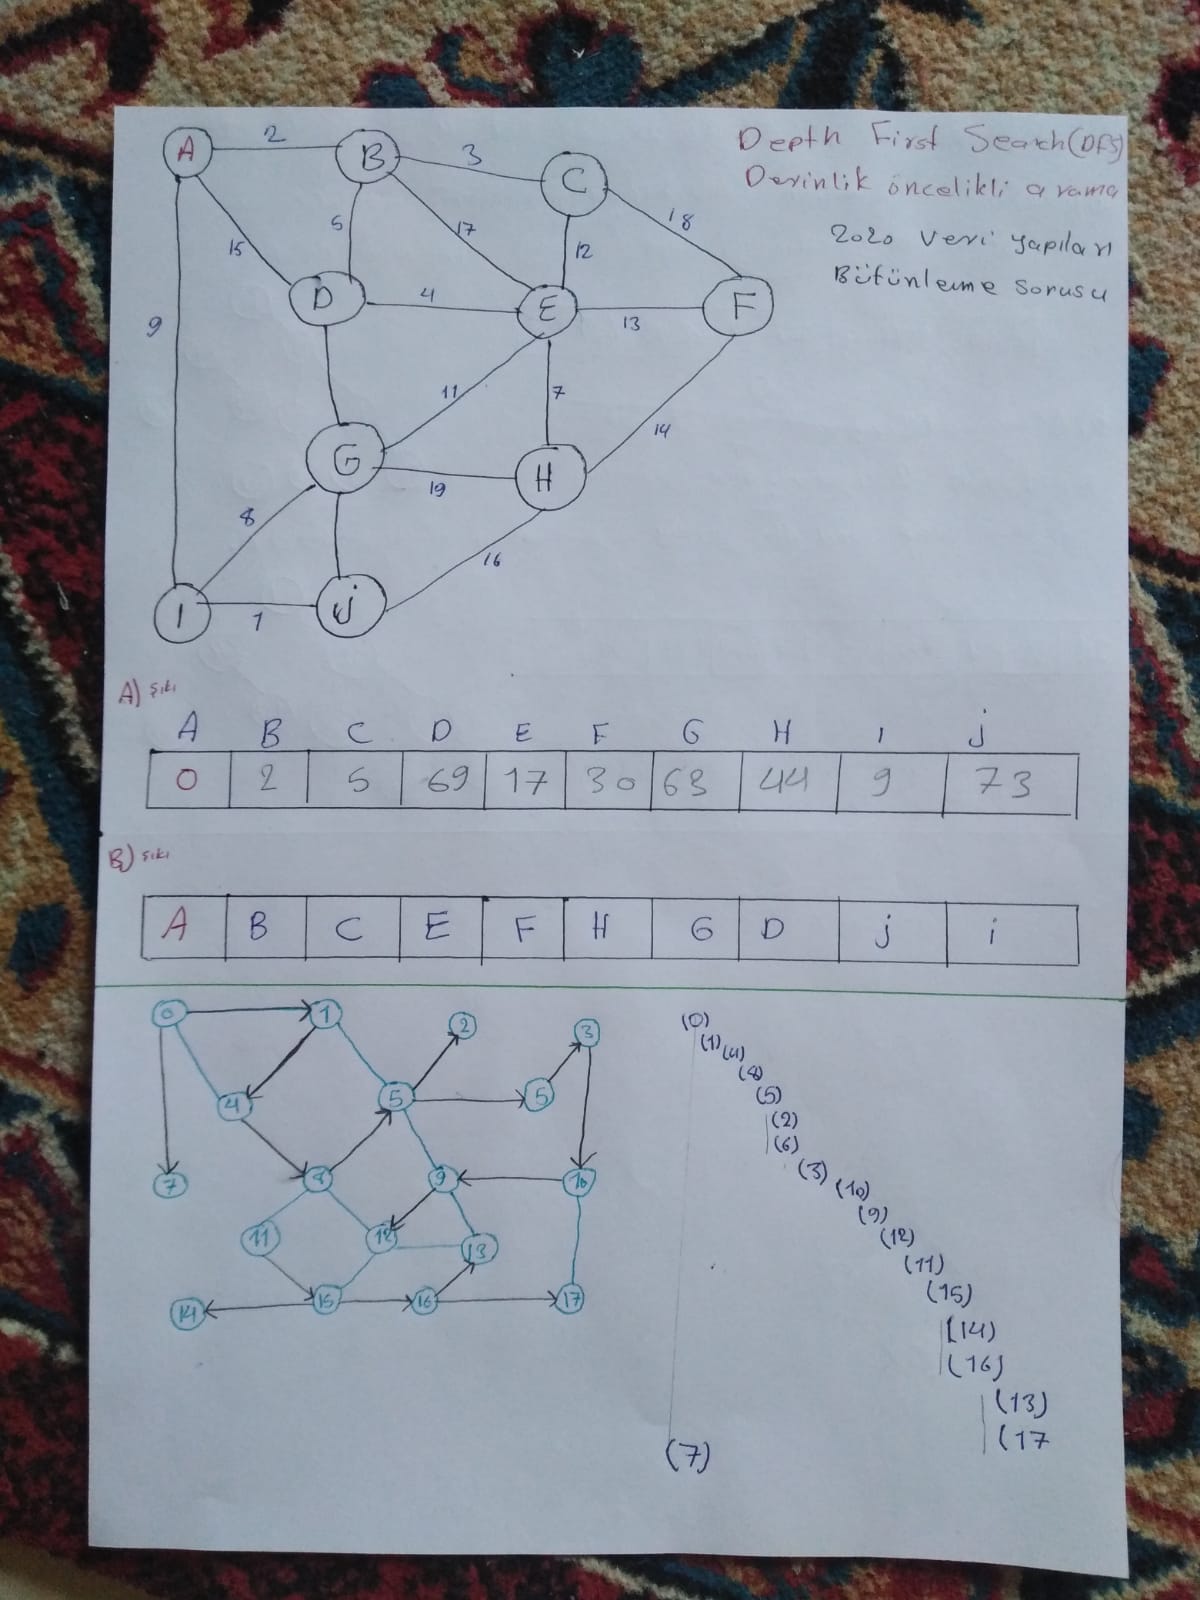 Depth First Search (DFS)
Derinlik öncelikli arama
2020 veri yapıları
Bütünleme sorusu
A 2 B 3 C
18
15 5 17 12
9 D 4 E 13 F
11 7 14
G 19 H
8 16
I 1 j
A) şıkı
A B C D E F G H I j
0 2 5 69 17 30 63 44 9 73
B) şıkı
A B C E F H G D j i
0 1 2 3
4 5 5
7 8 9 10
11 12 13
14 15 16 17
(0)
(1) (4)
(8)
(5)
(2)
(6)
(3) (10)
(9)
(12)
(11)
(15)
(14)
(16)
(13)
(17
(7)